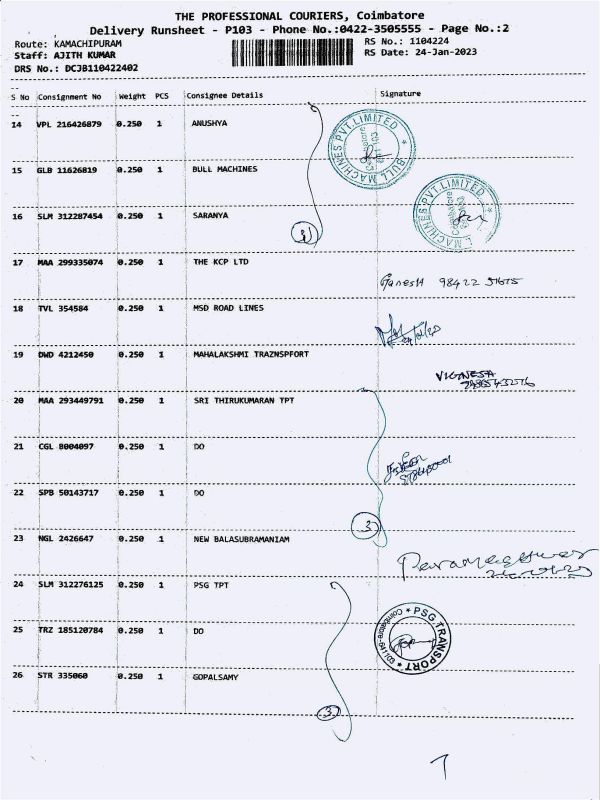 THE PROFESSIONAL COURIERS, Coimbatore
Delivery Runsheet - P103 - Phone No.:0422-3505555 - Page No.:2
Route: KAMACHIPURAM RS No.: 1104224
Staff: AJITH KUMAR RS Date: 24-Jan-2023
DRS No.: DCJB110422402
S No Consignment No Weight PCS Consignee Details Signature
14 VPL 216426879 0.250 1 ANUSHYA
MACHINES PVT.LIMITED * BULL
15 GLB 11626819 0.250 1 BULL MACHINES
MACHINES PVT.LIMITED
Coimbatore
16 SLM 312287454 0.250 1 SARANYA
3
17 MAA 299335074 0.250 1 THE KCP LTD
Ganesh 98422
18 TVL 354584 0.250 1 MSD ROAD LINES
19 DWD 4212450 0.250 1 MAHALAKSHMI TRAZNSPFORT
VIGNESH
20 MAA 293449791 0.250 1 SRI THIRUKUMARAN TPT
21 CGL 8004097 0.250 1 DO
22 SPB 50143717 0.250 1 DO
3
23 NGL 2426647 0.250 1 NEW BALASUBRAMANIAM
24 SLM 312276125 0.250 1 PSG TPT
25 TRZ 185120784 0.250 1 DO
* PSG TRANSPORT * Coimbatore-641103
26 STR 335060 0.250 1 GOPALSAMY
3
7